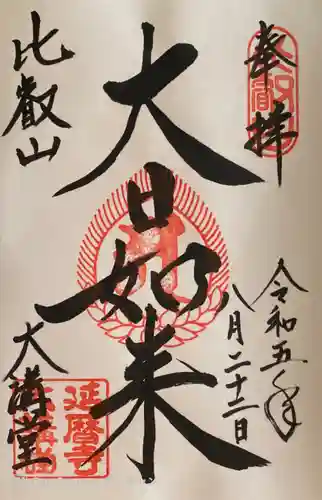 奉拝
令和五年
八月二十二日
大日如来
比叡山
大講堂
比叡山
延暦寺
大講堂